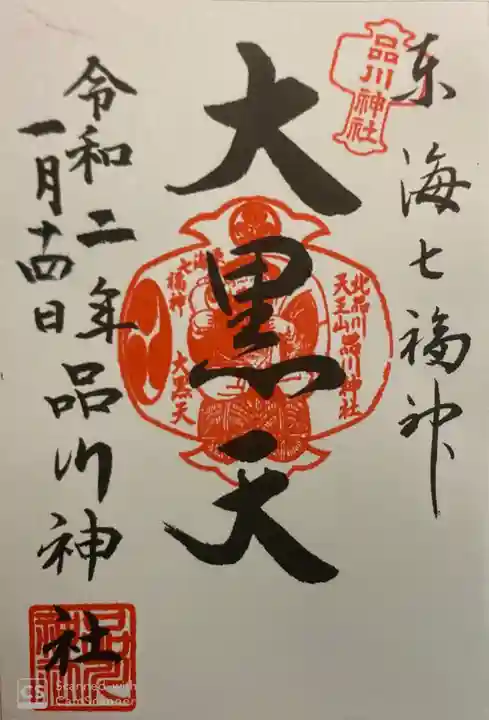 東海七福神
品川神社
大黒天
北品川
天王山 品川神社
七福神
大黒天
令和二年 品川神社
一月十四日
CS Scanned with
CamScanner